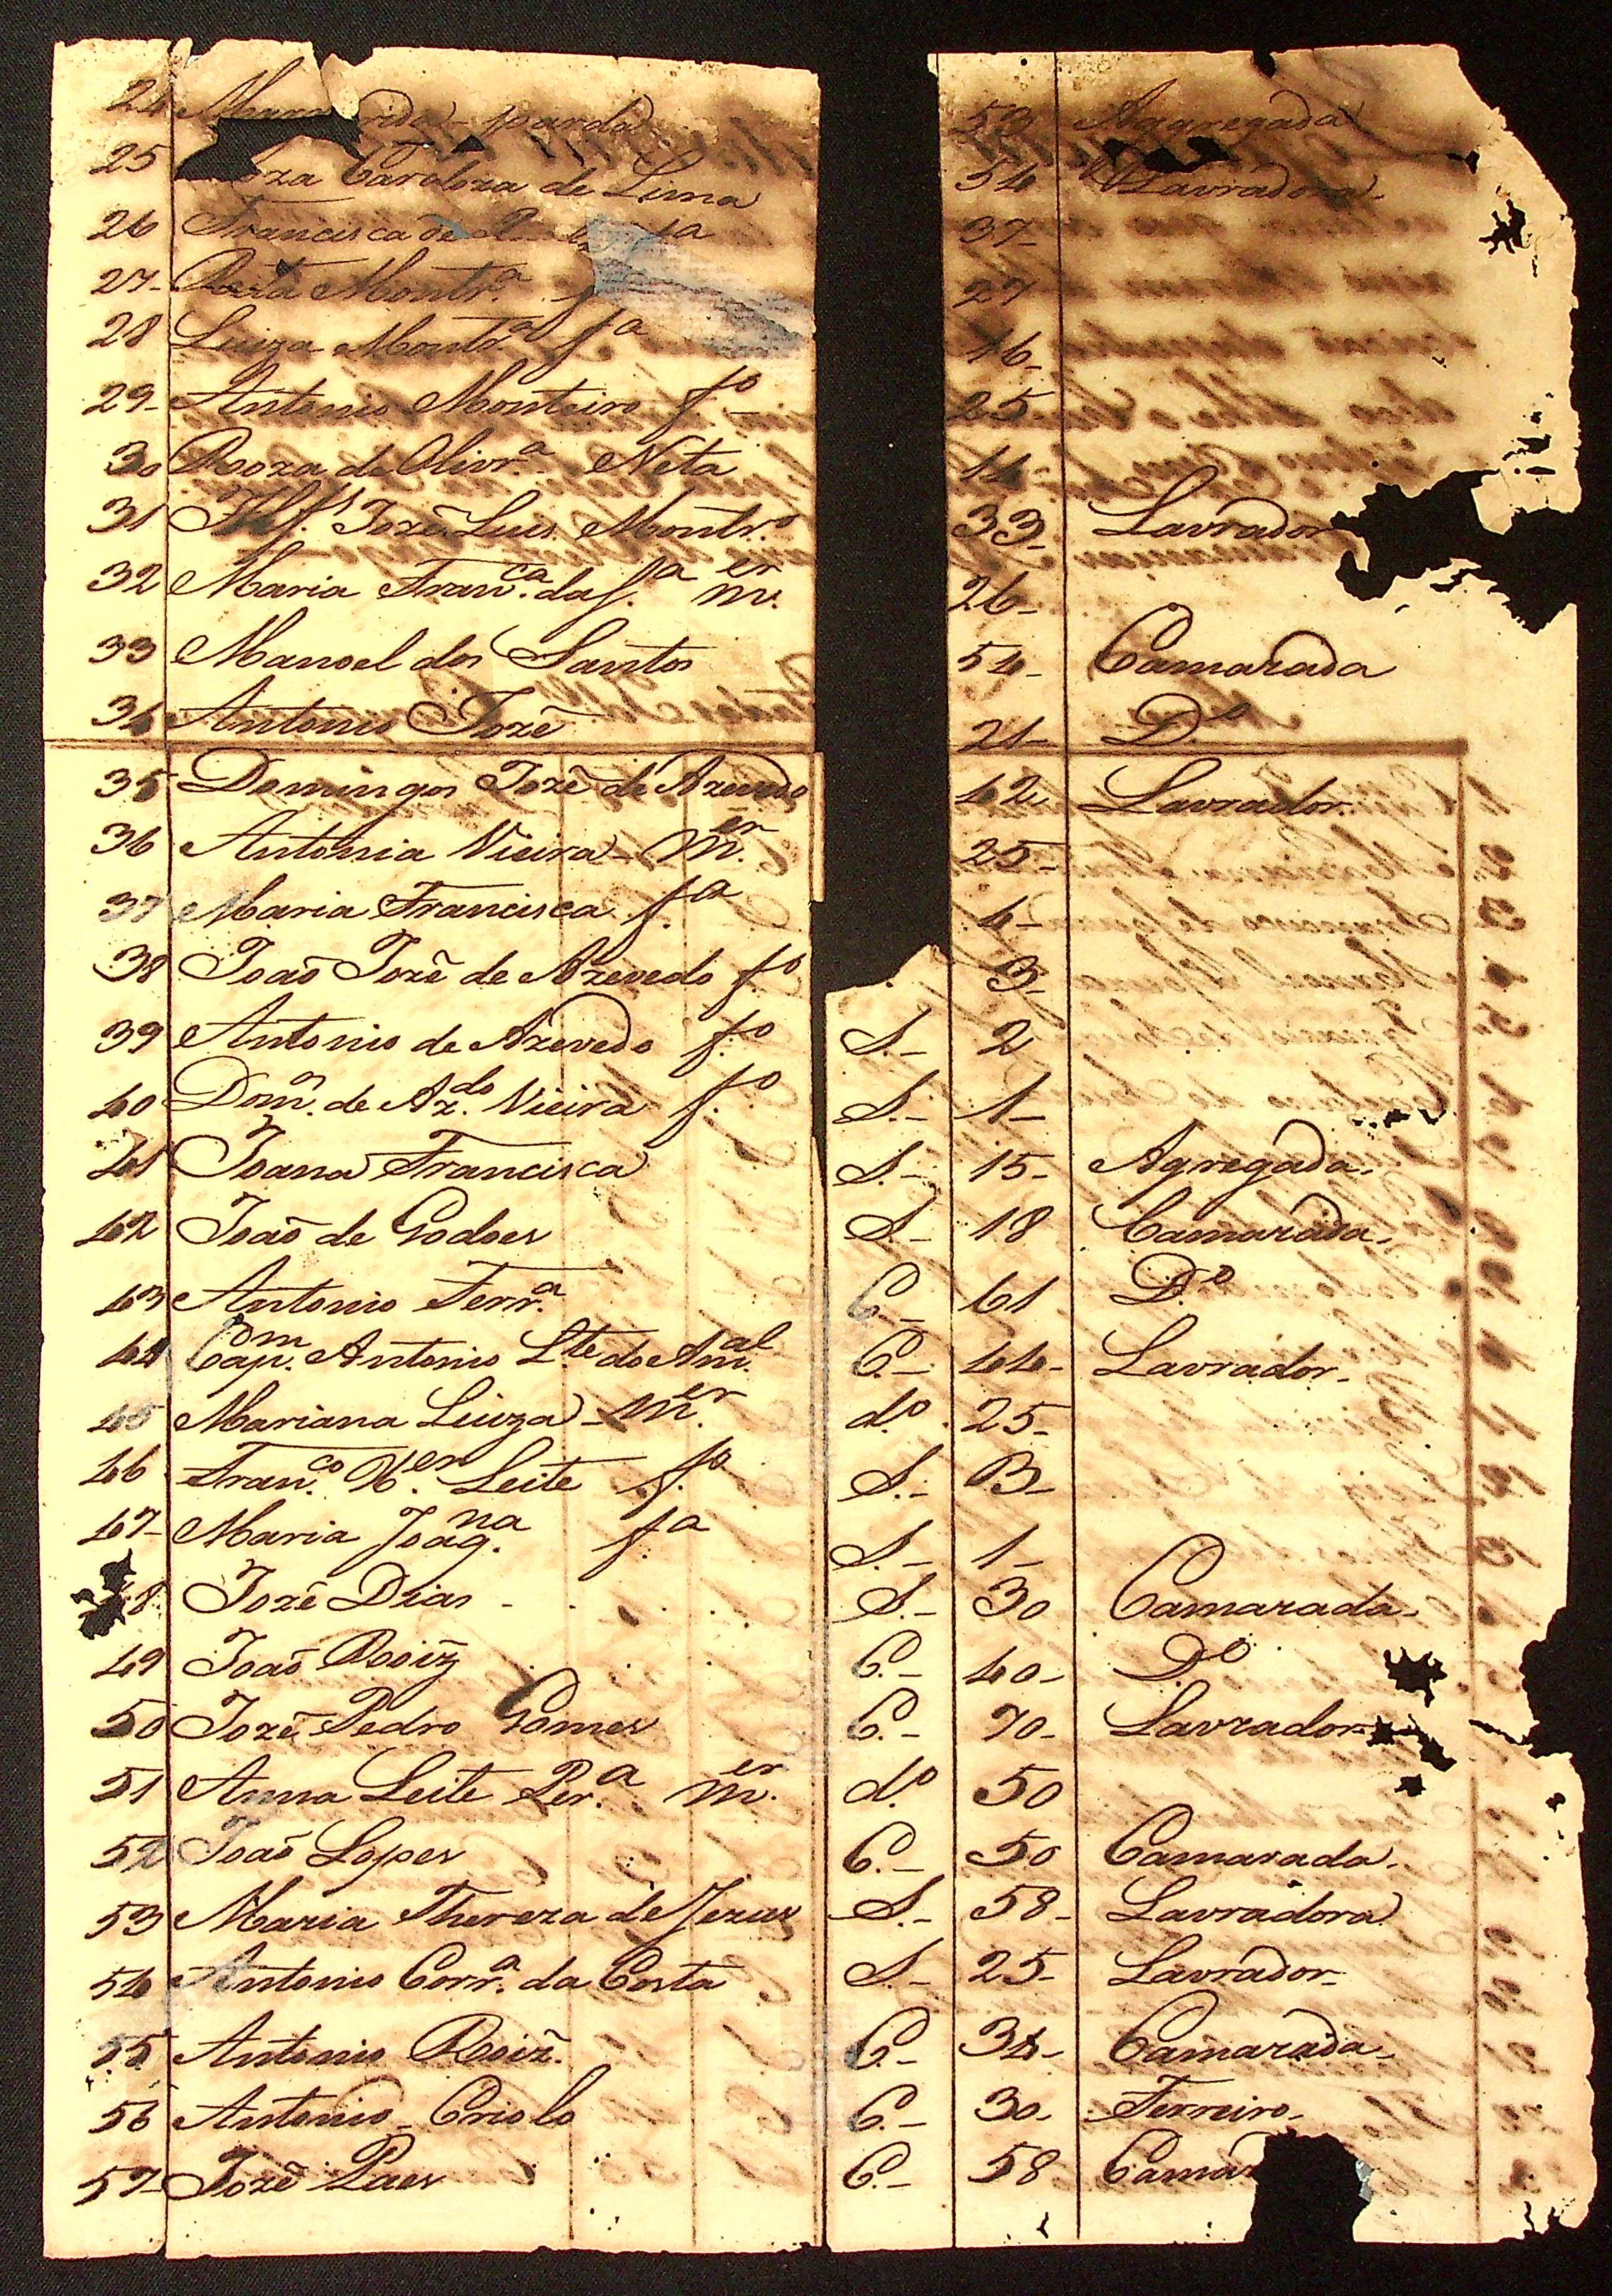 24 parda 53 Aggregada
25 Cardoza de Lima 54 Lavradora
26 Francisca de fa 37
27 Rita Montr.a 27
28 Luiza Montr.a f.a 16
29 Antonio Monteiro f.o 25
30 Roza de Olivr.a Neta 14
31 Alf.s Jozê Luis Montr.o 33 Lavrador
32 Maria Fran.ca da f.a m.er 26
33 Manoel dos Santos 54 Camarada
34 Antonio Jozê 21 D.o
35 Domingos Jozê de Azevedo 42 Lavrador.
36 Antonia Vieira m.er 25
37 Maria Francisca f.a 4
38 Joaõ Jozê de Azevedo f.o 3
39 Antonio de Azevedo f.o S. 2
40 Dom.os de Az.do Vieira f.o S. 1
41 Joana Francisca S. 15 Agregada.
42 Joaõ de Godoes S. 18 Camarada.
43 Antonio Ferr.a C. 61 D.o
44 Cap.m Antonio L.te do Am.al C. 44 Lavrador.
45 Mariana Luiza m.er d.o 25
46 Fran.co X.er Leite f.o S. 13
47 Maria Joaq.na f.a S. 1
8 Jozê Dias S. 30 Camarada.
49 Joaõ Roiz C. 40 D.o
50 Jozê Pedro Gomes C. 70 Lavrador
51 Anna Leite Per.a m.er d.o 50
52 Joaõ Lopes C. 50 Camarada.
53 Maria Thereza de Jezus S. 58 Lavradora
54 Antonio Corr.a da Costa S. 25 Lavrador
55 Antonio Roiz. C. 34 Camarada
56 Antonio Criolo C. 30 Ferreiro
57 Jozê Paes C. 58 Camar